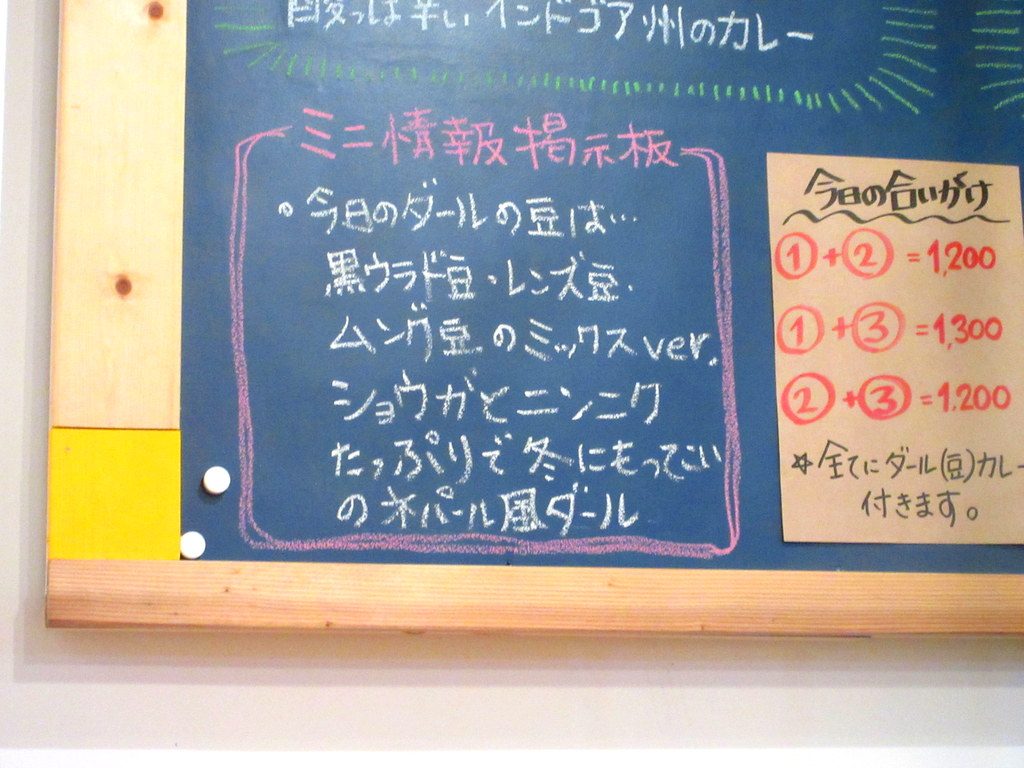 酸っぱ辛いインドゴア州のカレー
ミニ情報掲示板
・今日のダールの豆は…
黒ウラド豆・レンズ豆・
ムング豆のミックスver.
ショウガとニンニク
たっぷりで冬にもってこい
のネパール風ダール
今日の合いがけ
①+②=1,200
①+③=1,300
②+③=1,200
☆全てにダール(豆)カレー
付きます。